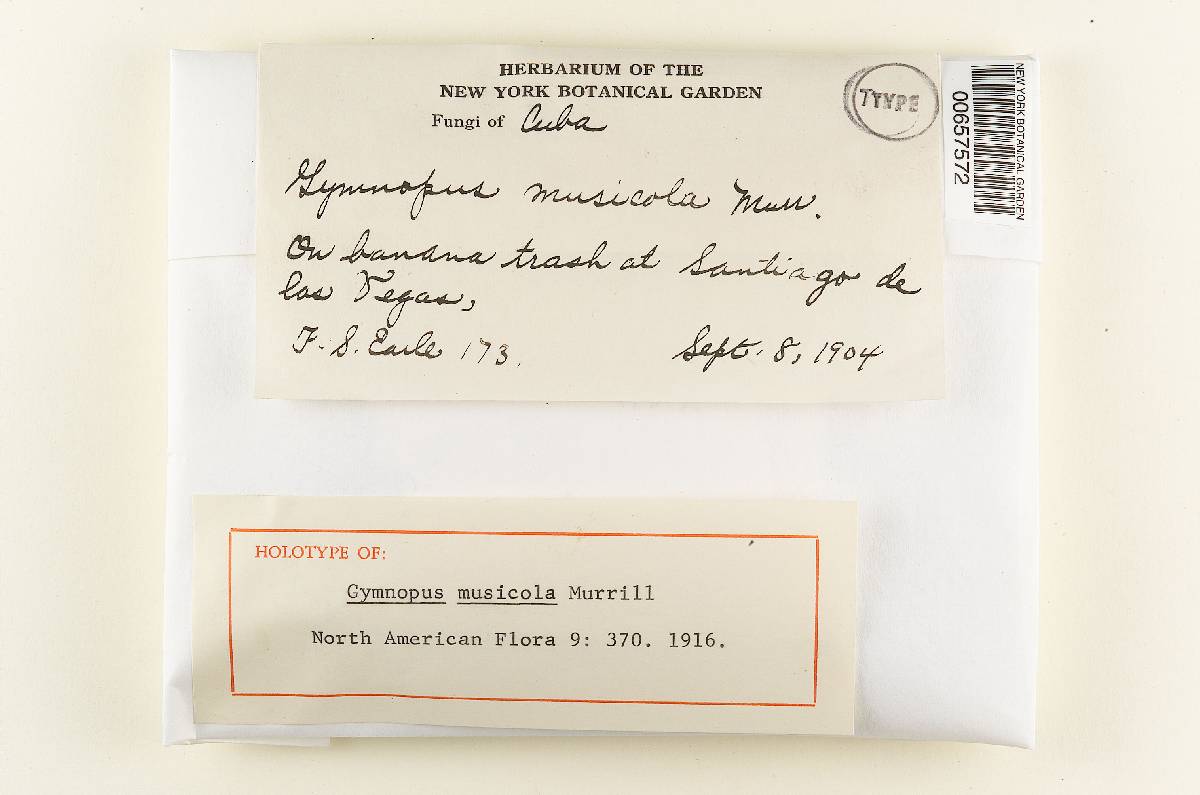 HERBARIUM OF THE
NEW YORK BOTANICAL GARDEN
Fungi of Cuba
TTYPE
NEW YORK BOTANICAL GARDEN
00657572
Gymnopus musicola Murr.
On banana trash at Santiago de
las Vegas,
F. S. Earle 173.
Sept. 8, 1904
HOLOTYPE OF:
Gymnopus musicola Murrill
North American Flora 9: 370. 1916.